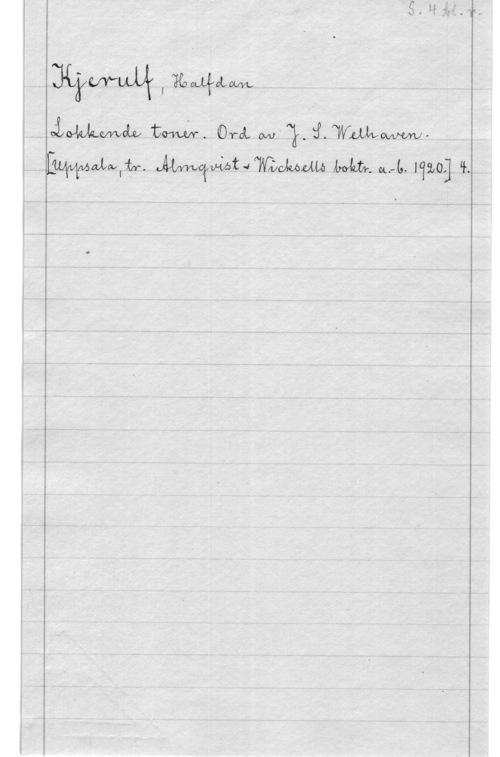 S. 4 bl. r.
Kjerulf, Halfdan
Lokkende toner. Ord av J. S. Welhaven.
[Uppsala, tr. Almqvist & Wicksells boktr. a.-b. 1920.] 4.